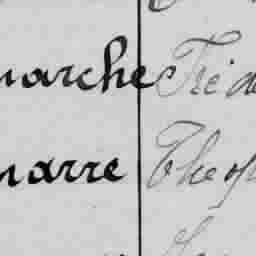 marche Fréd
marre Théop